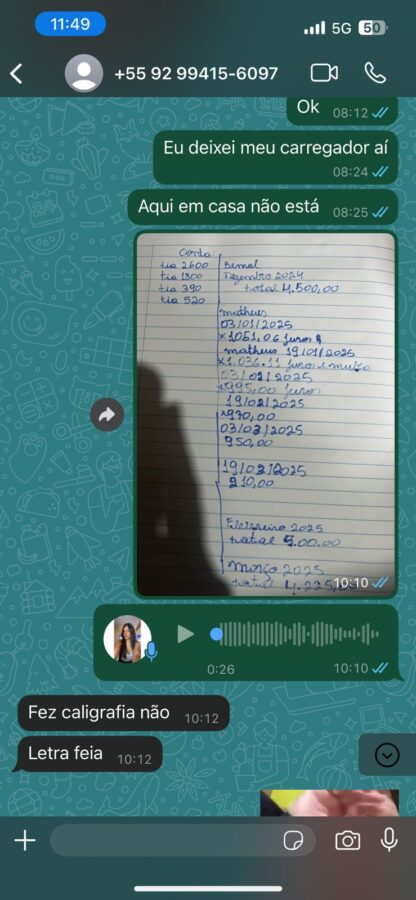 11:49
5G 50
+55 92 99415-6097
Ok 08:12
Eu deixei meu carregador aí
08:24
Aqui em casa não está 08:25
Conta:
tia 2600
tia 1300
tia 390
tia 520
Dezembro 2024
total 4.500,00
matheus
03/01/2025
×1051,06 juros
matheus 19/01/2025
×1.036.11 juros e multa
03/02/2025
×995,00 juros
19/02/2025
×970,00
03/03/2025
950,00
19/03/2025
910,00
Fevereiro 2025
total 5.00.00
Março 2025
total 4.225,00
10:10
0:26 10:10
Fez caligrafia não 10:12
Letra feia 10:12